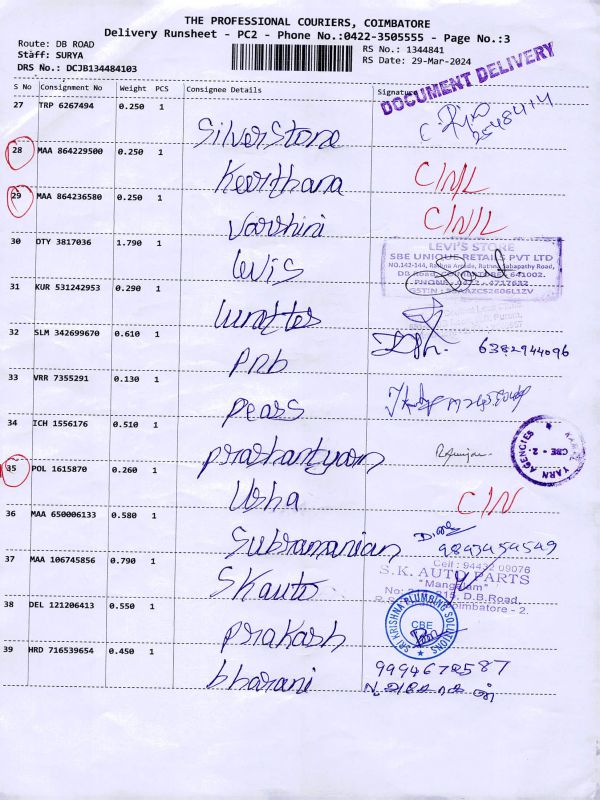 THE PROFESSIONAL COURIERS, COIMBATORE
Delivery Runsheet - PC2 - Phone No.:0422-3505555 - Page No.:3
Route: DB ROAD
Staff: SURYA
DRS No.: DCJB134484103
RS No.: 1344841
RS Date: 29-Mar-2024
DOCUMENT DELIVERY
S No Consignment No Weight PCS Consignee Details Signature
27 TRP 6267494 0.250 1
Silver Stone
28 MAA 864229500 0.250 1
Keerthana C/N/L
29 MAA 864236580 0.250 1
Varshini C/N/L
30 OTY 3817036 1.790 1
Levis
LEVI'S STORE
SBE UNIQUE RETAILS PVT LTD
NO.142-144, Rathna Arcade, Rathna Sabapathy Road,
D.B. Road, COIMBATORE - 641002.
31 KUR 531242953 0.290 1
32 SLM 342699670 0.610 1
PNB 6382944096
33 VRR 7355291 0.130 1
Pears
34 ICH 1556176 0.510 1
YARN AGENCIES
CBE - 2.
35 POL 1615870 0.260 1
Usha C/N
36 MAA 650006133 0.580 1
Subramanian 9843454549
37 MAA 106745856 0.790 1
SK auto
Cell : 94432 09076
S.K. AUTO PARTS
"Mangalam"
D.B.Road,
Coimbatore - 2.
38 DEL 121206413 0.550 1
Prakash
SRI KRISHNA PLUMBING SOLUTIONS
CBE
39 HRD 716539654 0.450 1
bharani